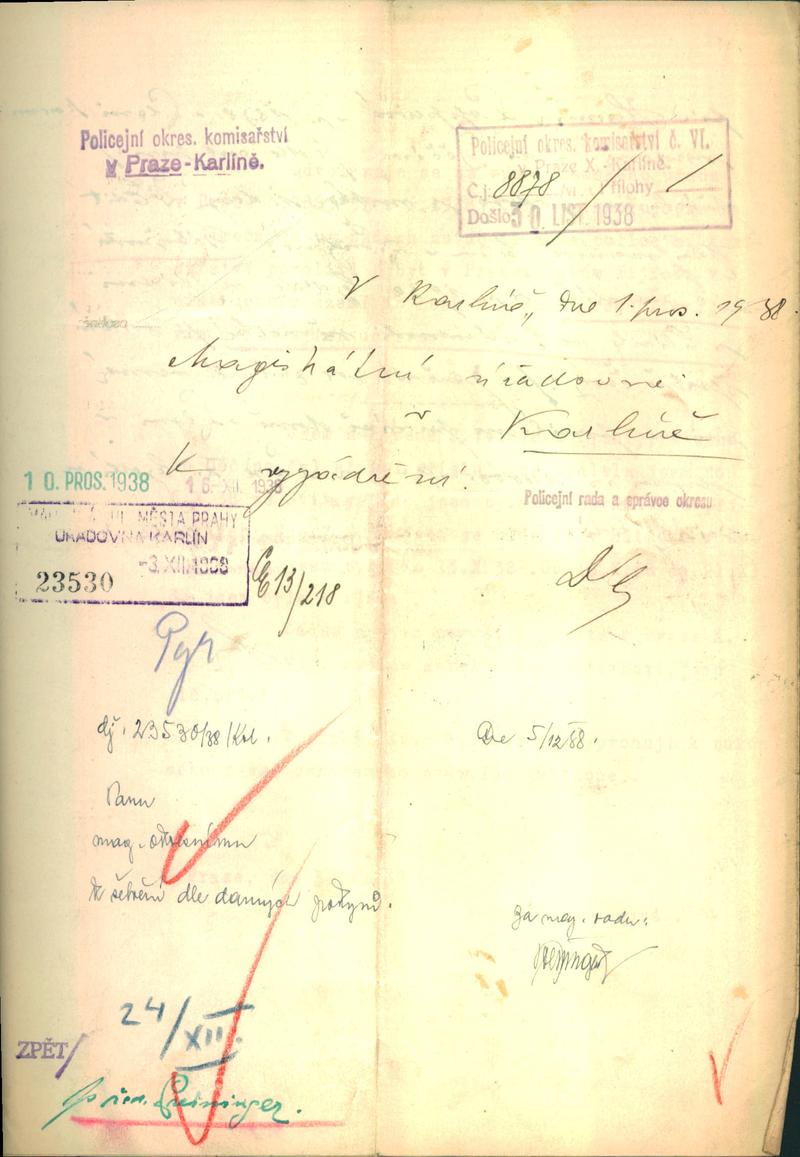 Policejní okres. komisařství
v Praze-Karlíně.
Policejní okres. komisařství č. VI.
v Praze X.-Karlíně.
Č.j. 8878 / Přílohy /
Došlo 30 LIST. 1938
V Karlíně, dne 1. pros. 1938.
Magistrátní úřadovně
v Karlíně
K vyjádření.
10. PROS. 1938
16. XII. 1938
Policejní rada a správce okresu
MĚSTA PRAHY
ÚŘADOVNA KARLÍN
-3. XII. 1938
23530
E 13/218
čj. 23530/38/Krl.
Dne 5/12 38.
Panu
mag. okresnímu
k šetření dle daných pokynů.
Za mag. radu:
24/XII.
ZPĚT/